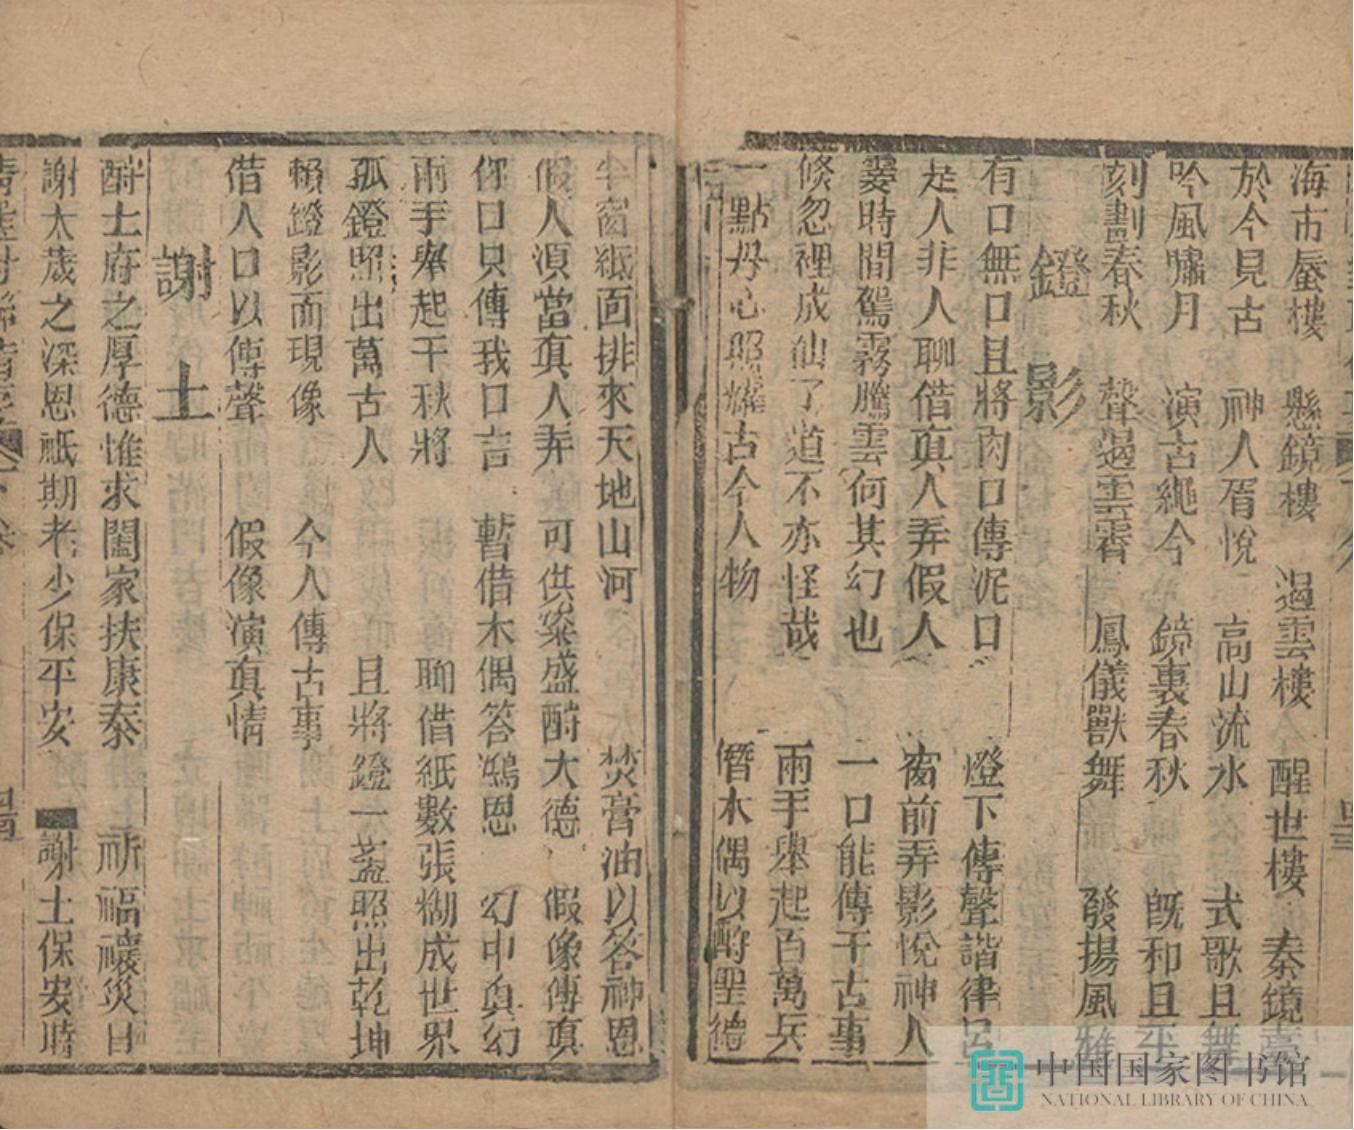 海市蜃樓 懸鏡樓 遏雲樓 醒世樓 秦鏡臺
於今見古 神人胥悅 高山流水 式歌且舞
吟風嘯月 演古繩今 鏡裏春秋 既和且平
刻劃春秋 聲遏雲霄 鳳儀獸舞 發揚風雅
鐙影
有口無口且將肉口傳泥口 燈下傳聲諧律呂
是人非人聊借真人弄假人 窗前弄影悅神人
霎時間駕霧騰雲何其幻也 一口能傳千古事
倏忽裡成仙了道不亦怪哉 兩手舉起百萬兵
一點丹心照耀古今人物 僭木偶以酧聖德
半窗紙面排來天地山河 焚膏油以答神恩
假人須當真人弄 可供粢盛酧大德 假像傳真
你口只傳我口言 暫借木偶答鴻恩 幻中真幻
兩手舉起千秋將 聊借紙數張糊成世界
孤鐙照出萬古人 且將鐙一盞照出乾坤
賴鐙影而現像 今人傳古事
借人口以傳聲 假像演真情
謝土
酧土府之厚德惟求闔家扶康泰 祈福禳災日
謝太歲之深恩祇期老少保平安 謝土保安時
中国国家图书馆
NATIONAL LIBRARY OF CHINA